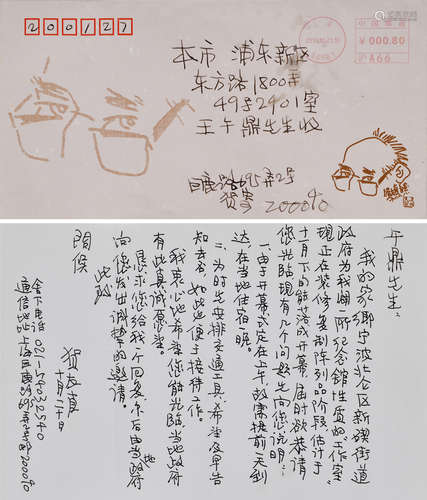 200127
本市 浦东新区
东方路1800弄
49号2401室
王午鼎先生收
巨鹿路695弄2号
贺寄 200040
¥000.80
A66
午鼎先生：
我的家乡宁波北仑区新碶街道
政府为我辟一所纪念馆性质的"工作室"
现正在装修、复制陈列品阶段，估计于
十一月下旬能落成开幕，届时欲恭请
您光临。现有几个问题先向您说明：
一、由于开幕式定在上午，故需提前一天到
达，在当地住宿一晚。
二、为时先安排交通工具，希望及早告
知去否，如此也便于接待工作。
我衷心地希望您能光临，当地政府
有此真诚愿望。
恳求您给我一个回复，尔后由当地政府
向您发出诚挚的邀请。
此致
阁候
贺友直
十月二十日
舍下电话 021-54032540
通信地址 上海巨鹿路695弄2号 200040